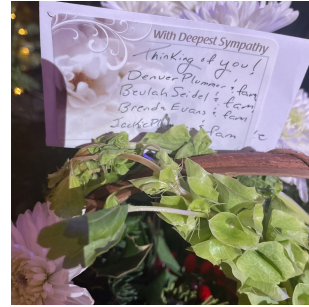 With Deepest Sympathy
Thinking of you!
Denver Plummer & fam
Beulah Seidel & fam
Brenda Evans & fam
Jackie & fam